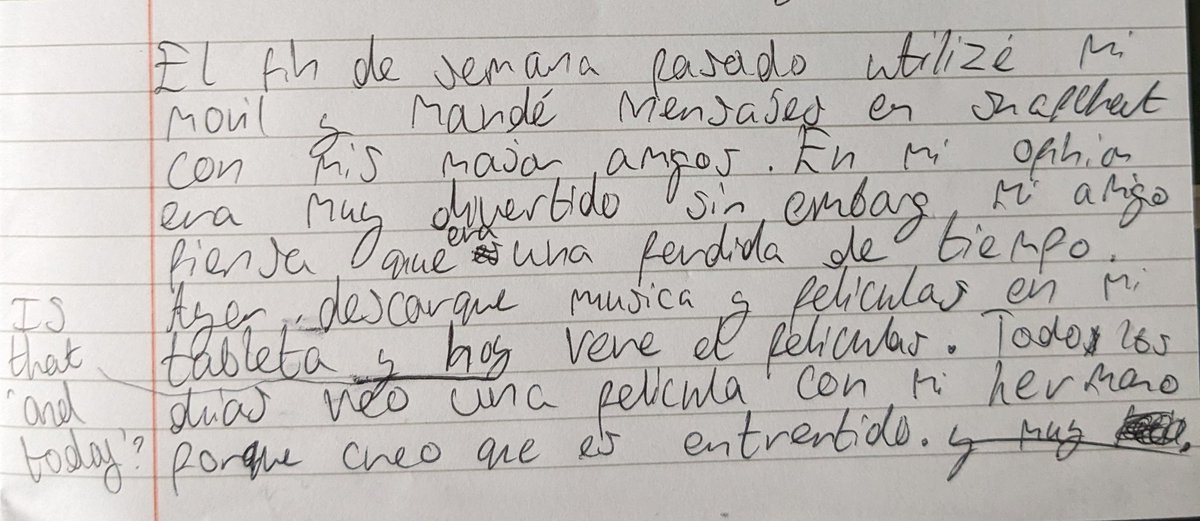 El fin de semana pasado utilizé mi
movil y mandé mensajes en snapchat
con mis major amgos. En mi ophion
era muy divertido sin embarg mi amigo
piensa que era una perdida de tiempo.
Ayer descarque musica y peliculas en mi
tableta y hoy vere el peliculas. Todos los
duias veo una pelicula con mi hermano
porque creo que es entrentido. y muy
Is
that
"and
today"?